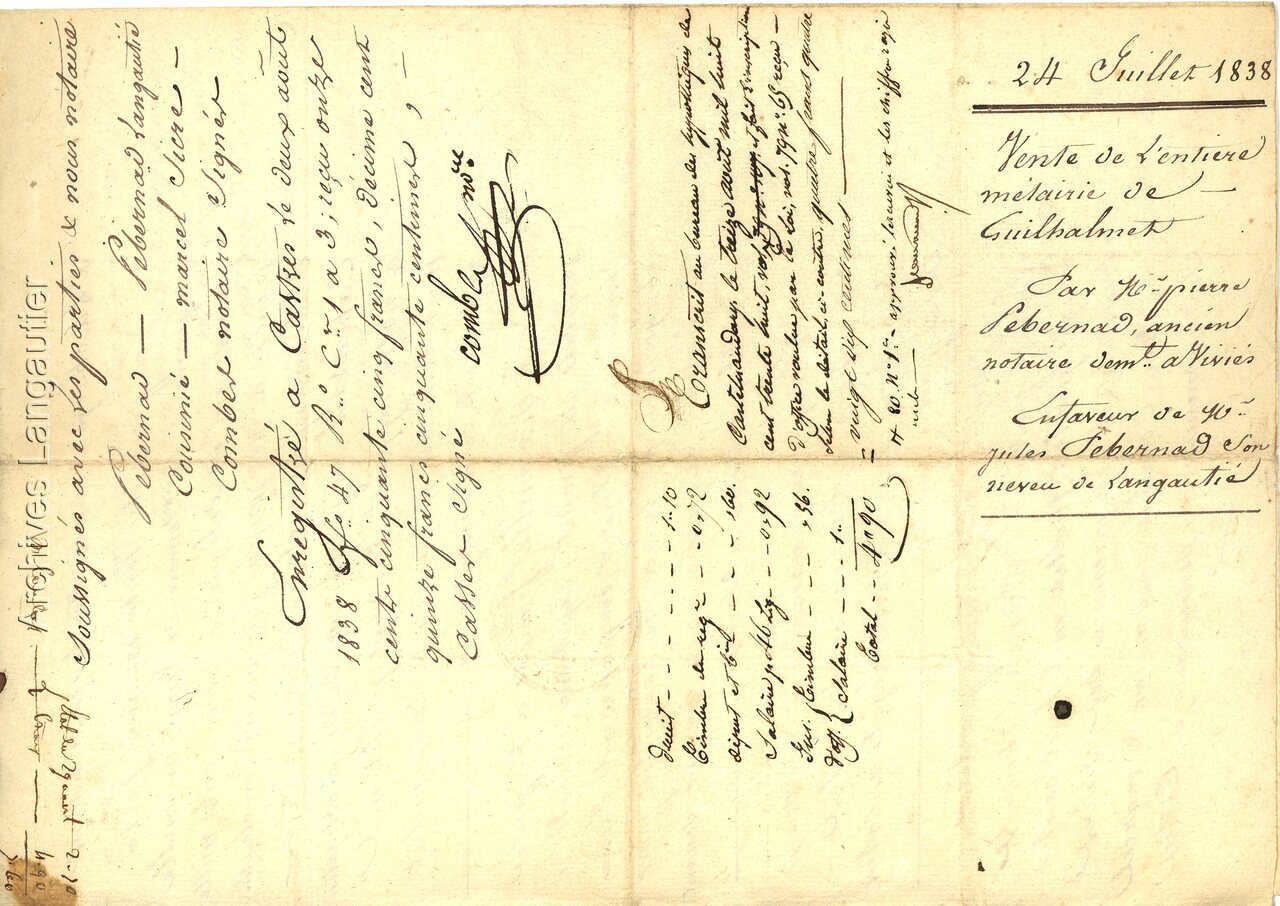 24 Juillet 1838
Vente de L'entiere
métairie de —
Guilhalmet
Par Mr. pierre
Pebernad, ancien
notaire demt. a Viviés
Enfaveur de Mr.
jules Pebernad Son
neveu de Langautié
Soussignés avec les parties & nous notaire
Pebernad — Pebernad Langautié
Counnié — marcel Sicre —
Combes notaire Signés
Enregistré à Castres le deux août
1838 fo. 47 Ro. Cr. 1 a 3; reçu onze
cents cinquante cinq francs, décime cent
quinze francs cinquante centimes, —
Casses Signé
Combes nore
Transcrit au bureau des hypothèques de
Castelnaudary le treize août mil huit
cent trente huit, vol.
d'office voulue par la loi, vol. 79 no. 63 reçu —
selon le détail, ci-contre, quatre francs quatre
= vingt dix centimes —
droit - - - - - 1.10
Timbre du regre - - 0.72
Salaire p. 46 Lig - - 0.92
Timbre - - - .56.
Salaire - - - - 1..
Total - - - 4.90
4.90
Archives Langautier